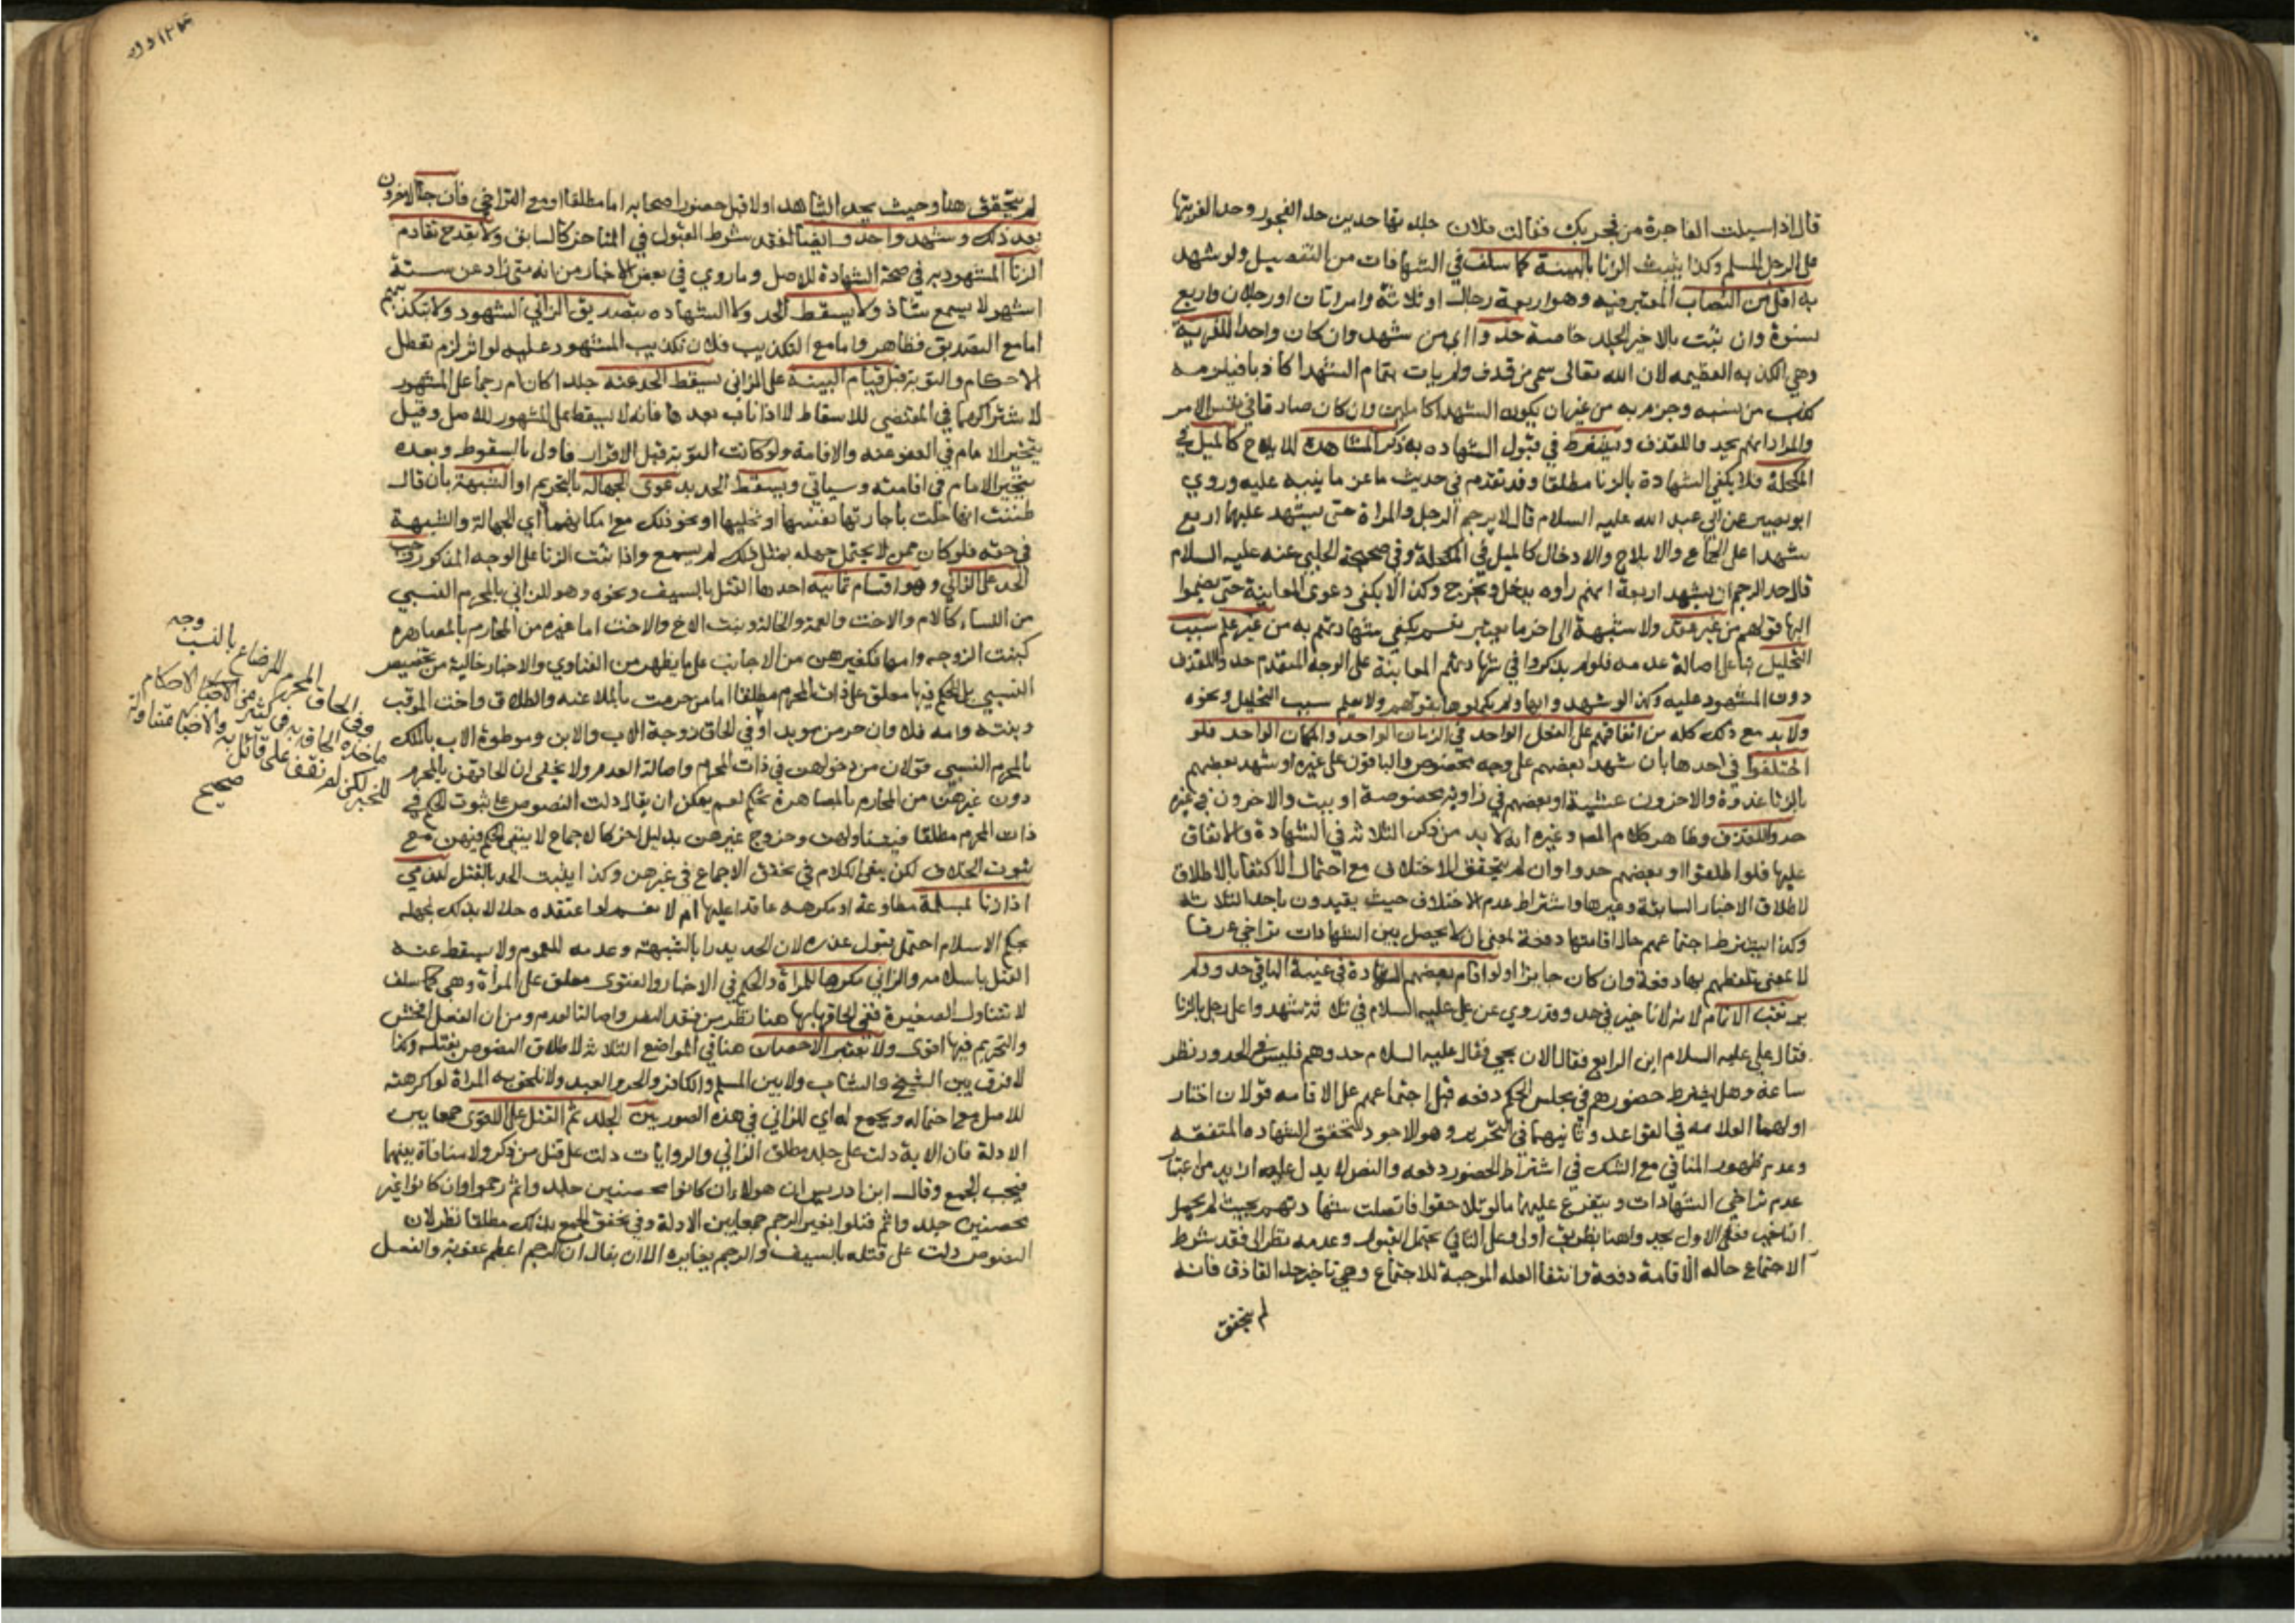 قال اذا سيلت الفاجرة من فجر بك فقالت فلان جلد تها حدين حد الفجور وحد الفريتها
على الرجل المسلم وكذا يثبت الزنا بالبينة كما سلف في الشهادات من التفصيل ولو شهد
به اقل من النصاب المعتبر فيه وهو اربعة رجال او ثلاثة وامراتان او رجلان واربع
نسوة وان ثبت بالاخير الجلد خاصة حدوا اي من شهد وان كان واحدا للفرية
وهي الكذبه العظيمه لان الله تعالى سمى من قذف ولم يات بتمام الشهدا كاذبا فيلزمه
كذب من نسبه وجزم به من غير ان يكون الشهدا كاملين وان كان صادقا في نفس الامر
والمراد انهم يحدوا للقذف ويشترط في قبول الشهاده به ذكر المشاهدة للايلاج كالميل في
المكحلة فلا يكفي الشهادة بالزنا مطلقا وقد تقدم في حديث ماعز ما ينبه عليه وروي
ابو بصير عن ابي عبد الله عليه السلام قال لا يرجم الرجل والمراة حتى يشهد عليهما اربع
شهدا على الجماع والايلاج والادخال كالميل في المكحلة وفي صحيحة الحلبي عنه عليه السلام
قال حد الرجم ان يشهد اربعة انهم راوه يدخل ويخرج وكذا لا يكفي دعوى المعاينة حتى يضموا
اليها قولهم من غير عقد ولا شبهة الى اخر ما يعتبر نعم يكفي شهادتهم به من غير علم سبب
التحليل بنا على اصالة عدمه فلو لم يذكروا في شهادتهم المعاينة على الوجه المتقدم حدوا للقذف
دون المشهود عليه وكذا لو شهدوا بها ولم يكملوها بقولهم ولا نعلم سبب التحليل ونحوه
ولا بد مع ذلك كله من اتفاقهم على الفعل الواحد في الزمان الواحد والمكان الواحد فلو
اختلفوا في احدها بان شهد بعضهم على وجه مخصوص والباقون على غيره او شهد بعضهم
بالزنا غدوة والاخرون عشية او بعضهم في زاوية مخصوصة او بيت والاخرون في غيره
حدوا للقذف وظاهر كلام المص وغيره انه لا بد من ذكر الثلاثة في الشهادة والاتفاق
عليها فلو اطلقوا او بعضهم حدوا وان لم يتحقق الاختلاف مع احتمال الاكتفا بالاطلاق
لاطلاق الاخبار السابقة وغيرها واشتراط عدم الاختلاف حيث يقيدون باحد الثلاثة
وكذا يشترط اجتماعهم حال اقامتها دفعة بمعنى ان لا يحصل بين الشهادات تراخي عرفا
لا بمعنى تلفظهم بها دفعة وان كان جايزا ولو اقام بعضهم الشهادة في غيبة الباقي حدوا ولم
يرتقب الاتمام لانه لا تاخير في حد وقد روي عن علي عليه السلام في ثلاثة شهدوا على رجل بالزنا
فقال علي عليه السلام اين الرابع فقالوا الان يجي فقال عليه السلام حدوهم فليس في الحدود نظر
ساعة وهل يشترط حضورهم في مجلس الحكم دفعه قبل اجتماعهم على الاقامه قولان اختار
اولهما العلامه في القواعد وثانيهما في التحرير وهو الاجود لتحقق الشهاده المتفقه
وعدم ظهور المنافي مع الشك في اشتراط الحضور دفعه والنص لا يدل على ازيد من اعتبار
عدم تراخي الشهادات ويتفرع عليهما ما لو تلاحقوا فاتصلت شهادتهم بحيث لم يحصل
التاخير فعلى الاول يحد واهنا بطريق اولى وعلى الثاني يحتمل القبول وعدمه نظرا الى فقد شرط
الاجتماع حالة الاقامة دفعة وانتفا العله الموجبة للاجتماع وهي تاخير حد القاذف فانه
لم يتحقق
١٢٣
لم يتحقق هنا وحيث يحد الشاهد اولا قبل حضور اصحابه اما مطلقا او مع التراخي فان جا الاخرون
بعد ذلك وشهدوا حدوا ايضا لفقد شرط القبول في المتاخر كالسابق ولا يقدح تقادم
الزنا المشهود به في صحة الشهادة للاصل وما روي في بعض الاخبار من انه متى زاد عن ستة
اشهر لا يسمع شاذ ولا يسقط الحد ولا الشهاده بتصديق الزاني الشهود ولا بتكذيبهم
اما مع التصديق فظاهر واما مع التكذيب فلان تكذيب المشهود عليه لو اثر لزم تعطل
الاحكام والتوبة قبل قيام البينة على الزاني يسقط الحد عنه جلدا كان ام رجما على المشهور
لاشتراكهما في المقتضي للاسقاط لا اذا تاب بعدها فانه لا يسقط على المشهور للاصل وقيل
يتخير الامام في العفو عنه والاقامة ولو كانت التوبة قبل الاقرار فاولى بالسقوط وبعده
يتخير الامام في اقامته وسياتي ويسقط الحد بدعوى الجهالة بالتحريم او الشبهة بان قال
ظننت انها حلت باجارتها نفسها او تحليها او نحو ذلك مع امكانهما اي الجهالة والشبهة
في حقه فلو كان ممن لا يحتمل جهله بمثل ذلك لم يسمع واذا ثبت الزنا على الوجه المذكور وجب
الحد على الزاني وهو اقسام ثمانيه احدها القتل بالسيف ونحوه وهو للزاني بالمحرم النسبي
من النساء كالام والاخت والعمة والخالة وبنت الاخ والاخت اما غيره من المحارم بالمصاهره
كبنت الزوجه وامها فكغيرهن من الاجانب على ما يظهر من الفتاوي والاخبار خالية من تخصيص
النسبي بل الحكم فيها معلق على ذات المحرم مطلقا اما من حرمت بالملاعنه والطلاق واخت الموقب
وبنته وامه فلا وان حرمن موبدا وفي الحاق زوجة الاب والابن وموطوة الاب بالملك
بالمحرم النسبي قولان من دخولهن في ذات المحرم واصالة العدم ولا يخفى ان الحاقهن بالمحرم
دون غيرهن من المحارم بالمصاهرة تحكم نعم يمكن ان يقال دلت النصوص على ثبوت الحكم في
ذات المحرم مطلقا فيتناولهن وخروج غيرهن بدليل اخر كالاجماع لا ينفي الحكم فيهن مع
ثبوت الخلاف لكن يبقى الكلام في تحقق الاجماع في غيرهن وكذا يثبت الحد بالقتل للذمي
اذا زنا بمسلمة مطاوعة او مكرهه عاقدا عليها ام لا نعم لو اعتقده حلالا بذلك لجهله
بحكم الاسلام احتمل قبول عذره لان الحد يدرا بالشبهة وعدمه للعموم ولا يسقط عنه
القتل باسلامه والزاني مكرها للمراة والحكم في الاخبار والفتوى معلق على المراة وهي كما سلف
لا تتناول الصغيرة ففي الحاقها بها هنا نظر من فقد النص واصالة العدم ومن ان الفعل افحش
والتحريم فيها اقوى ولا يعتبر الاحصان هنا في المواضع الثلاثة لاطلاق النصوص بقتله وكذا
لا فرق بين الشيخ والشاب ولا بين المسلم والكافر والحر والعبد ولا تلحق به المراة لو اكرهته
للاصل مع احتماله ويجمع له اي للزاني في هذه الصور بين الجلد ثم القتل على الاقوى جمعا بين
الادلة فان الاية دلت على جلد مطلق الزاني والروايات دلت على قتل من ذكر ولا منافاة بينهما
فيجب الجمع وقال ابن ادريس ان هولاء ان كانوا محصنين جلدوا ثم رجموا وان كانوا غير
محصنين جلدوا ثم قتلوا بغير الرجم جمعا بين الادلة وفي تحقق الجمع بذلك مطلقا نظر لان
النصوص دلت على قتله بالسيف والرجم يغايره الا ان يقال ان الرجم اعظم عقوبة والفعل
وفي الحاق المحرم للرضاع بالنسب وجه
ماخذه الحاقه به في كثير من الاحكام
للخبر لكن لم نقف على قائل به والاخبار متناولة
صحيح